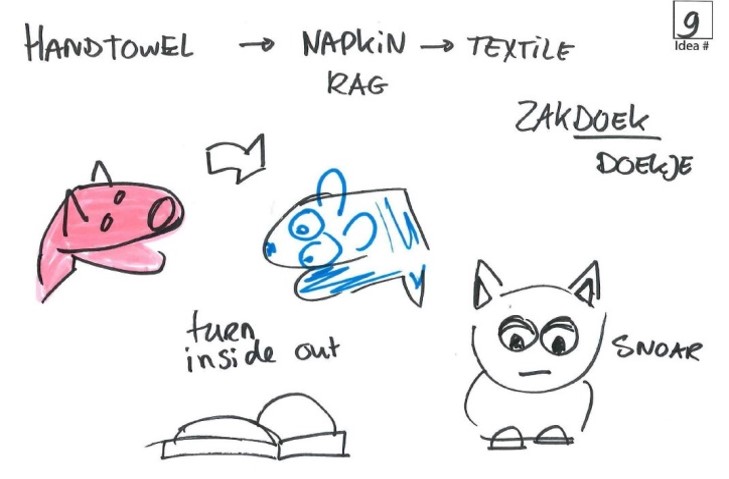 9
Idea #
HANDTOWEL → NAPKIN → TEXTILE
RAG
ZAKDOEK
DOEKJE
turn
inside out
SNOAR